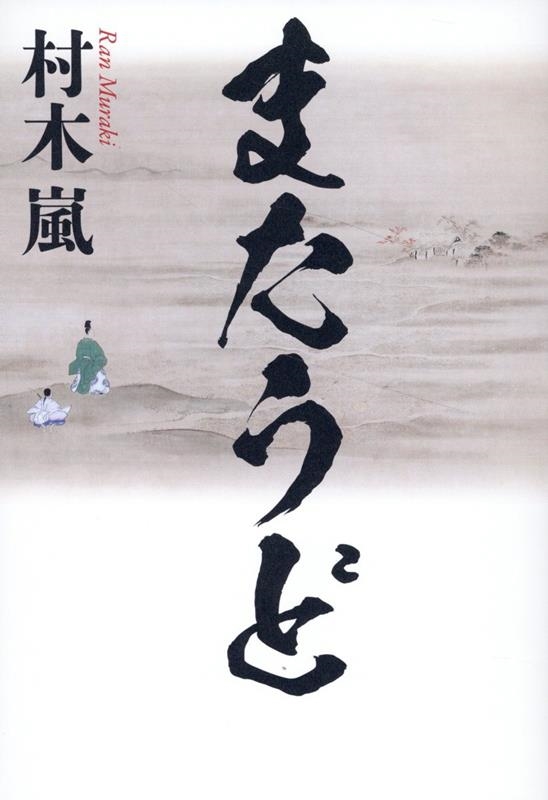 またうど
村木嵐
Ran Muraki